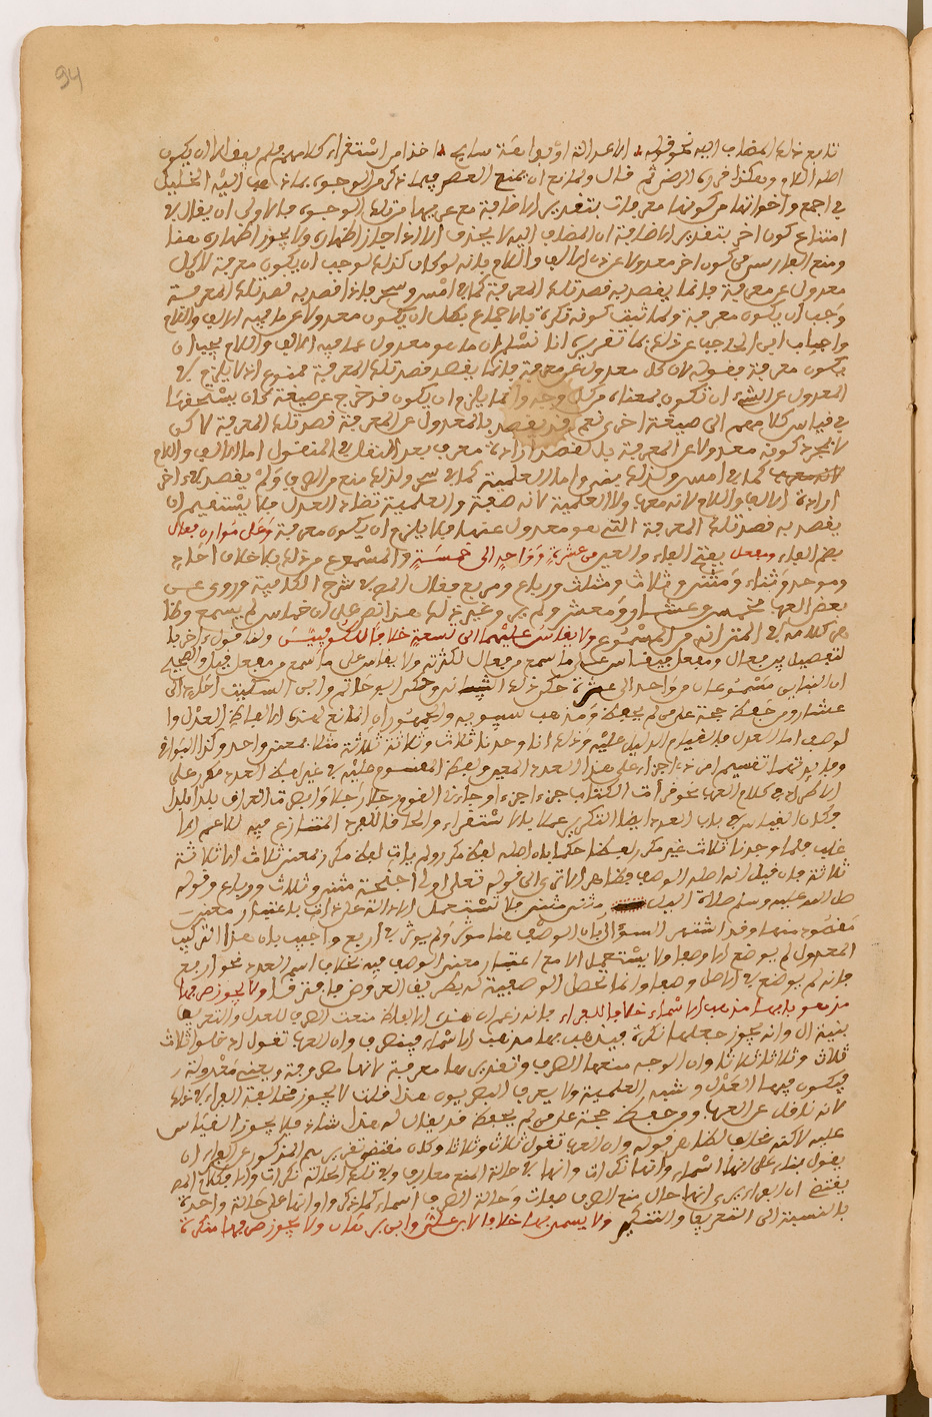 94
تابع ذلك المضاف اليه نحو قوله الا علالة او بداهة سابح اخذا من استغراء كلامهم فلم يبق الا ان يكون
اصله اللام وهكذا قرره الرضي ثم قال ولمانع ان يمنع الحصر فيما ذكر من الوجوه بما ذهب اليه الخليل
في اجمع واخواتها من كونها معرفات بتقدير الاضافة مع عريها من تلك الوجوه فالاولى ان يقال في
امتناع كون اخر بتقدير الاضافة ان المضاف اليه لا يحذف الا اذا جاز اظهاره ولا يجوز اظهاره هنا
ومنع الفارسي كون اخر معدولا عن ذي الالف واللام بانه لو كان كذلك لوجب ان يكون معرفة لان كل
معدول عن معرفة فانما يقصد به قصد تلك المعرفة كما في امس وسحر فاذا قصد به قصد تلك المعرفة
وجب ان يكون معرفة ولما ثبت كونه نكرة بالاجماع بطل ان يكون معدولا عما فيه الالف واللام
واجاب ابن الحاجب عن ذلك بما تقريره انا نسلم ان ما هو معدول عما فيه الالف واللام يجب ان
يكون معرفة فقوله لان كل معدول عن معرفة فانما يقصد قصد تلك المعرفة ممنوع اذ لا يلزم في
المعدول عن الشيء ان يكون بمعناه من كل وجه وانما يلزم ان يكون قد خرج عن صيغة كان يستحقها
في قياس كلامهم الى صيغة اخرى نعم قد يقصد بالمعدول عن المعرفة قصد تلك المعرفة لاكن
لا لمجرد كونه معدولا عن المعرفة بل لقصد ارادة معرف بعد النقل في المنقول اما الالف واللام
كما في امس ولذلك بني واما العلمية كما في سحر ولذلك منع من الصرف ولم يقصد في اخر
ارادة الالف واللام لانه معرب ولا العلمية لانه صفة والعلمية تضاد العدل فلا يستقيم ان
يقصد به قصد تلك المعرفة التي هو معدول عنها فلا يلزم ان يكون معرفة وعلى موازن فعال
بضم الفاء ومفعل بفتح الفاء والعين من عشرة وواحد الى خمسة والمسموع من ذلك بلا خلاف احاد
وموحد وثناء ومثنى وثلاث ومثلث ورباع ومربع وقال المص في شرح الكافية وروي عن
بعض العرب مخمس وعشار ومعشر ولم يرد غير ذلك هذا نصه على ان خماس لم يسمع وظا
هر كلامه في المتن انه من المسموع ولا يقاس عليهما الى تسعة خلافا للكوفيين وثم قول اخر با
لتفصيل بين فعال ومفعل فيقاس على ما سمع من فعال لكثرته ولا يقاس على ما سمع من مفعل لقلته والصحيح
ان البنايين مسموعان من واحد الى عشرة حكى ذلك الشيباني وحكى ابو حاتم وابن السكيت احاد الى
عشار ومن حفظ حجة على من لم يحفظ ومذهب سيبويه والجمهور ان المانع لهذه الالفاظ العدل وا
لوصف اما العدل فلقيام الدليل عليه وذلك انا وجدنا ثلاث وثلاثة ثلاثة مثلا بمعنى واحد وكذا البواقي
وفايدتهما تقسيم امر ذي اجزاء على هذا العدد المعين ولفظ المقسوم عليه في غير لفظ العدد مكرر على
الاطراد في كلام العرب نحو قرات الكتاب جزءا جزءا وجاءني القوم رجلا رجلا وابصرت العراق بلدا بلدا
فكان القياس في باب العدد ايضا التكرير عملا بالاستقراء والحاقا للفرد المتنازع فيه للاعم الا
غلب فلما وجدنا ثلاث غير مكرر لفظا حكمنا بان اصله لفظ مكرر ولم يات لفظ مكرر بمعنى ثلاث الا ثلاثة
ثلاثة فان قيل انه اصله الوصف فظاهر الا ترى الى قوله تعلى اولي اجنحة مثنى وثلاث ورباع وقوله
صلى الله عليه وسلم صلاة الليل مثنى مثنى فلا تستعمل الا دالة على ذات باعتبار معنى
مقصود منها وقد اشتهر السؤال بان الوصف هنا مؤثر ولم يؤثر في اربع واجيب بان هذا التركيب
المعدول لم يوضع الا وصفا ولا يستعمل الا مع اعتبار معنى الوصف فيه بخلاف اسم العدد نحو اربع
فانه لم يوضع في الاصل وصفا وانما تحصل الوصفية له بطريق العروض فافترقا ولا يجوز صرفها
مذهوبا بها مذهب الاسماء خلافا للفراء فانه زعم ان هذه الالفاظ منعت الصرف للعدل والتعريف
بنية ال وانه يجوز جعلها نكرة فيذهب بها مذهب الاسماء فينصرف وان العرب تقول ادخلوا ثلاث
ثلاث وثلاثا ثلاثا وان الوجه منعها الصرف وتقديرها معرفة لانها مصروفة ويعني معدولة
فيكون فيها العدل وشبه العلمية ولا يعرف البصريون هذا قلت لا يجوز مخالفة الفراء في ذلك
لانه ناقل عن العرب ومن حفظ حجة على من لم يحفظ قد يقال له هذا شاذ فلا يجوز القياس
عليه لاكنه مخالف لظاهر قوله وان العرب تقول ثلاث وثلاثا وكان مقتضى تقرير المذكور عن الفراء ان
يقول بناء على انها اسماء وانها نكرات وانها في حالة المنع معارف وفي تلك الحالة نكرات والا فكلام المص
يقتضي ان الفراء يرى انها حال منع الصرف صفات وحالة الصرف اسماء كما ذكر او انها على حالة واحدة
بالنسبة الى التعريف والتنكير ولا يسمى بها خلافا لابي علي وابن برهان ولا يجوز صرفها منكرة